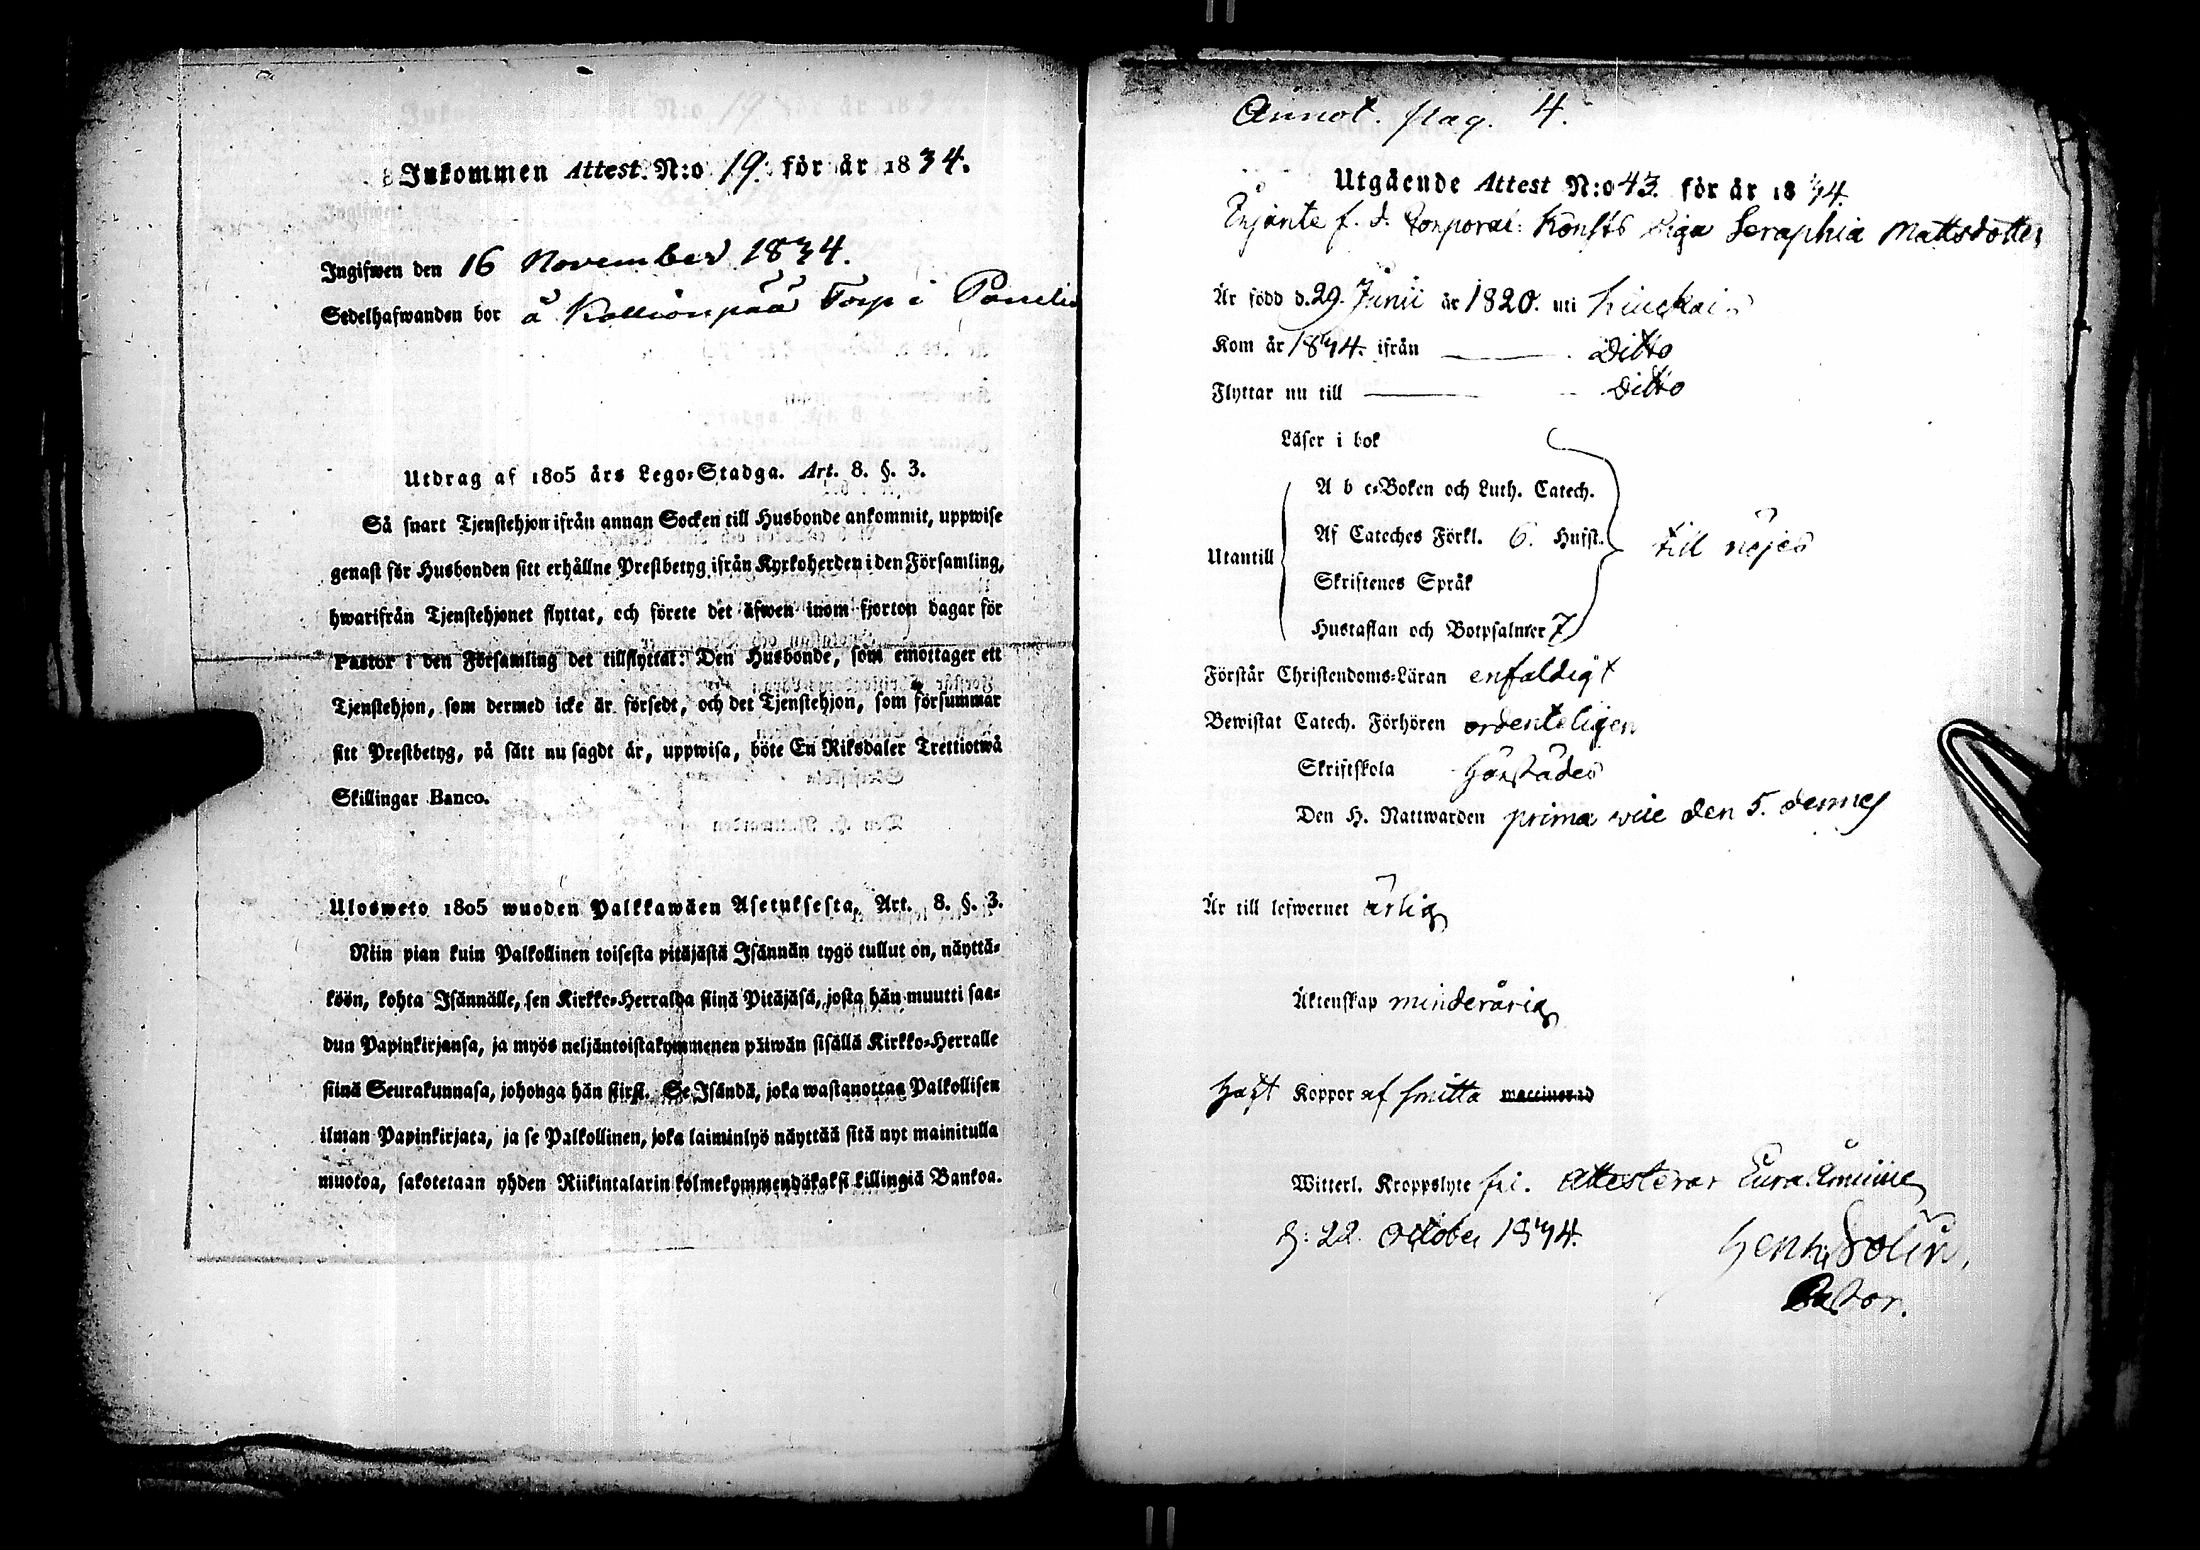 Inkommen Attest. N:o 19. för år 1834.
Ingifwen den 16 November 1834.
Sedelhafwanden bor å Kallionpää Torp i Panelia
Utdrag af 1805 års Lego-Stadga. Art. 8. §. 3.
Så snart Tjenstehjon ifrån annan Socken till Husbonde ankommit, uppwise
genast för Husbonden sitt erhållne Prestbetyg ifrån Kyrkoherden i den Församling,
hwarifrån Tjenstehjonet flyttat, och förete det äfwen inom fjorton dagar för
Pastor i den Församling det tillflyttat: Den Husbonde, som emottager ett
Tjenstehjon, som dermed icke är försedt, och det Tjenstehjon, som försummar
sitt Prestbetyg, på sätt nu sagdt är, uppwisa, böte En Riksdaler Trettiotwå
Skillingar Banco.
Ulosweto 1805 wuoden Palkkawäen Asetuksesta, Art. 8. §. 3.
Niin pian kuin Palkollinen toisesta pitäjästä Isännän tygö tullut on, näyttä-
köön, kohta Isännälle, sen Kirkko-Herralda siinä Pitäjäsä, josta hän muutti saa-
dun Papinkirjansa, ja myös neljäntoistakymmenen päiwän sisällä Kirkko-Herralle
siinä Seurakunnasa, johonga hän siirst. Se Isändä, joka wastanottaa Palkollisen
ilman Papinkirjata, ja se Palkollinen, joka laiminlyö näyttää sitä nyt mainitulla
muotoa, sakotetaan yhden Riikintalarin kolmekymmendäkaksi killingiä Bankoa.
Annot. pag. 4.
Utgående Attest N:o 43. för år 1834.
f. d. Corporal Konsts Piga Seraphia Mattsdotter
Är född d. 29. Junii år 1820. uti Kiuckais
Kom år 1834. ifrån Ditto
Flyttar nu till Ditto
Läser i bok
A b c-Boken och Luth. Catech.
Af Cateches Förkl. 6. Hufst.
Utantill till nöjes
Skriftenes Språk
Hustaflan och Botpsalmer 7
Förstår Christendoms-Läran enfaldigt
Bewistat Catech. Förhören ordenteligen
Skriftskola härstädes
Den H. Nattwarden prima den 5. dennes
Är till lefwernet ärlig
Äktenskap minderårig
Haft Koppor af smitta waccinerad
Witterl. Kroppslyte fri. Attesterar Eura
d: 22. October 1834.
Henr. Solin,
Pastor.